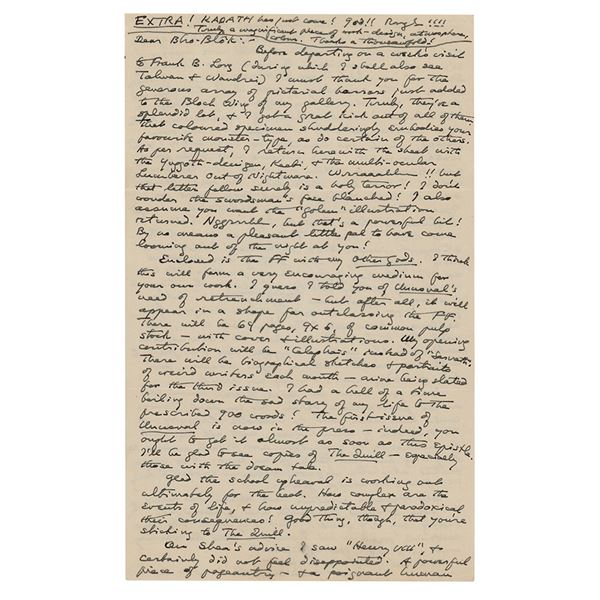 EXTRA! KADATH has just come! God!! !!!!
Truly a magnificent piece of work - design, atmosphere,
Dear Bho-Blôk:- colour. Thanks a thousandfold!
Before departing on a week's visit
to Frank B. Long (during which I shall also see
Talman & Wandrei) I must thank you for the
generous array of pictorial horrors just added
to the Bloch Wing of my gallery. Truly, they're a
splendid lot, & I got a great kick out of all of them.
That coloured specimen shudderingly embodies your
favourite monster-type, as do certain of the others.
As per request, I return herewith the sheet with
the Yuggoth-denizen, & the multi-ocular
Lumberer Out of Nightmare. !! but
that latter fellow surely is a holy terror! I don't
wonder the swordsman's face blanched! I also
assume you want the "golem" illustration
returned. Nggrrhh, but that's a powerful bit!
By no means a pleasant little pal to have come
looming out of the night at you!
Enclosed is the FF with my Other Gods. I think
this will form a very encouraging medium for
your own work. I guess I told you of Unusual's
need of retrenchment - but after all, it will
appear in a shape far outclassing the FF.
There will be 64 pages, 9x6, of common pulp
stock - with cover & illustrations. My opening
contribution will be "Celephais" instead of "Sarnath".
There will be biographical sketches & portraits
of weird writers each month - mine being slated
for the third issue. I had a hell of a time
boiling down the sad story of my life to the
prescribed 900 words! The first issue of
Unusual is now in the press - indeed, you
ought to get it almost as soon as this epistle.
I'll be glad to see copies of The Quill - especially
those with the dream tale.
Glad the school upheaval is working out
ultimately for the best. How complex are the
events of life, & how unpredictable & paradoxical
their consequences! Good thing, though, that you're
sticking to The Quill.
On Shea's advice I saw "Henry VIII", &
certainly did not feel disappointed. A powerful
piece of pageantry - & a poignant human